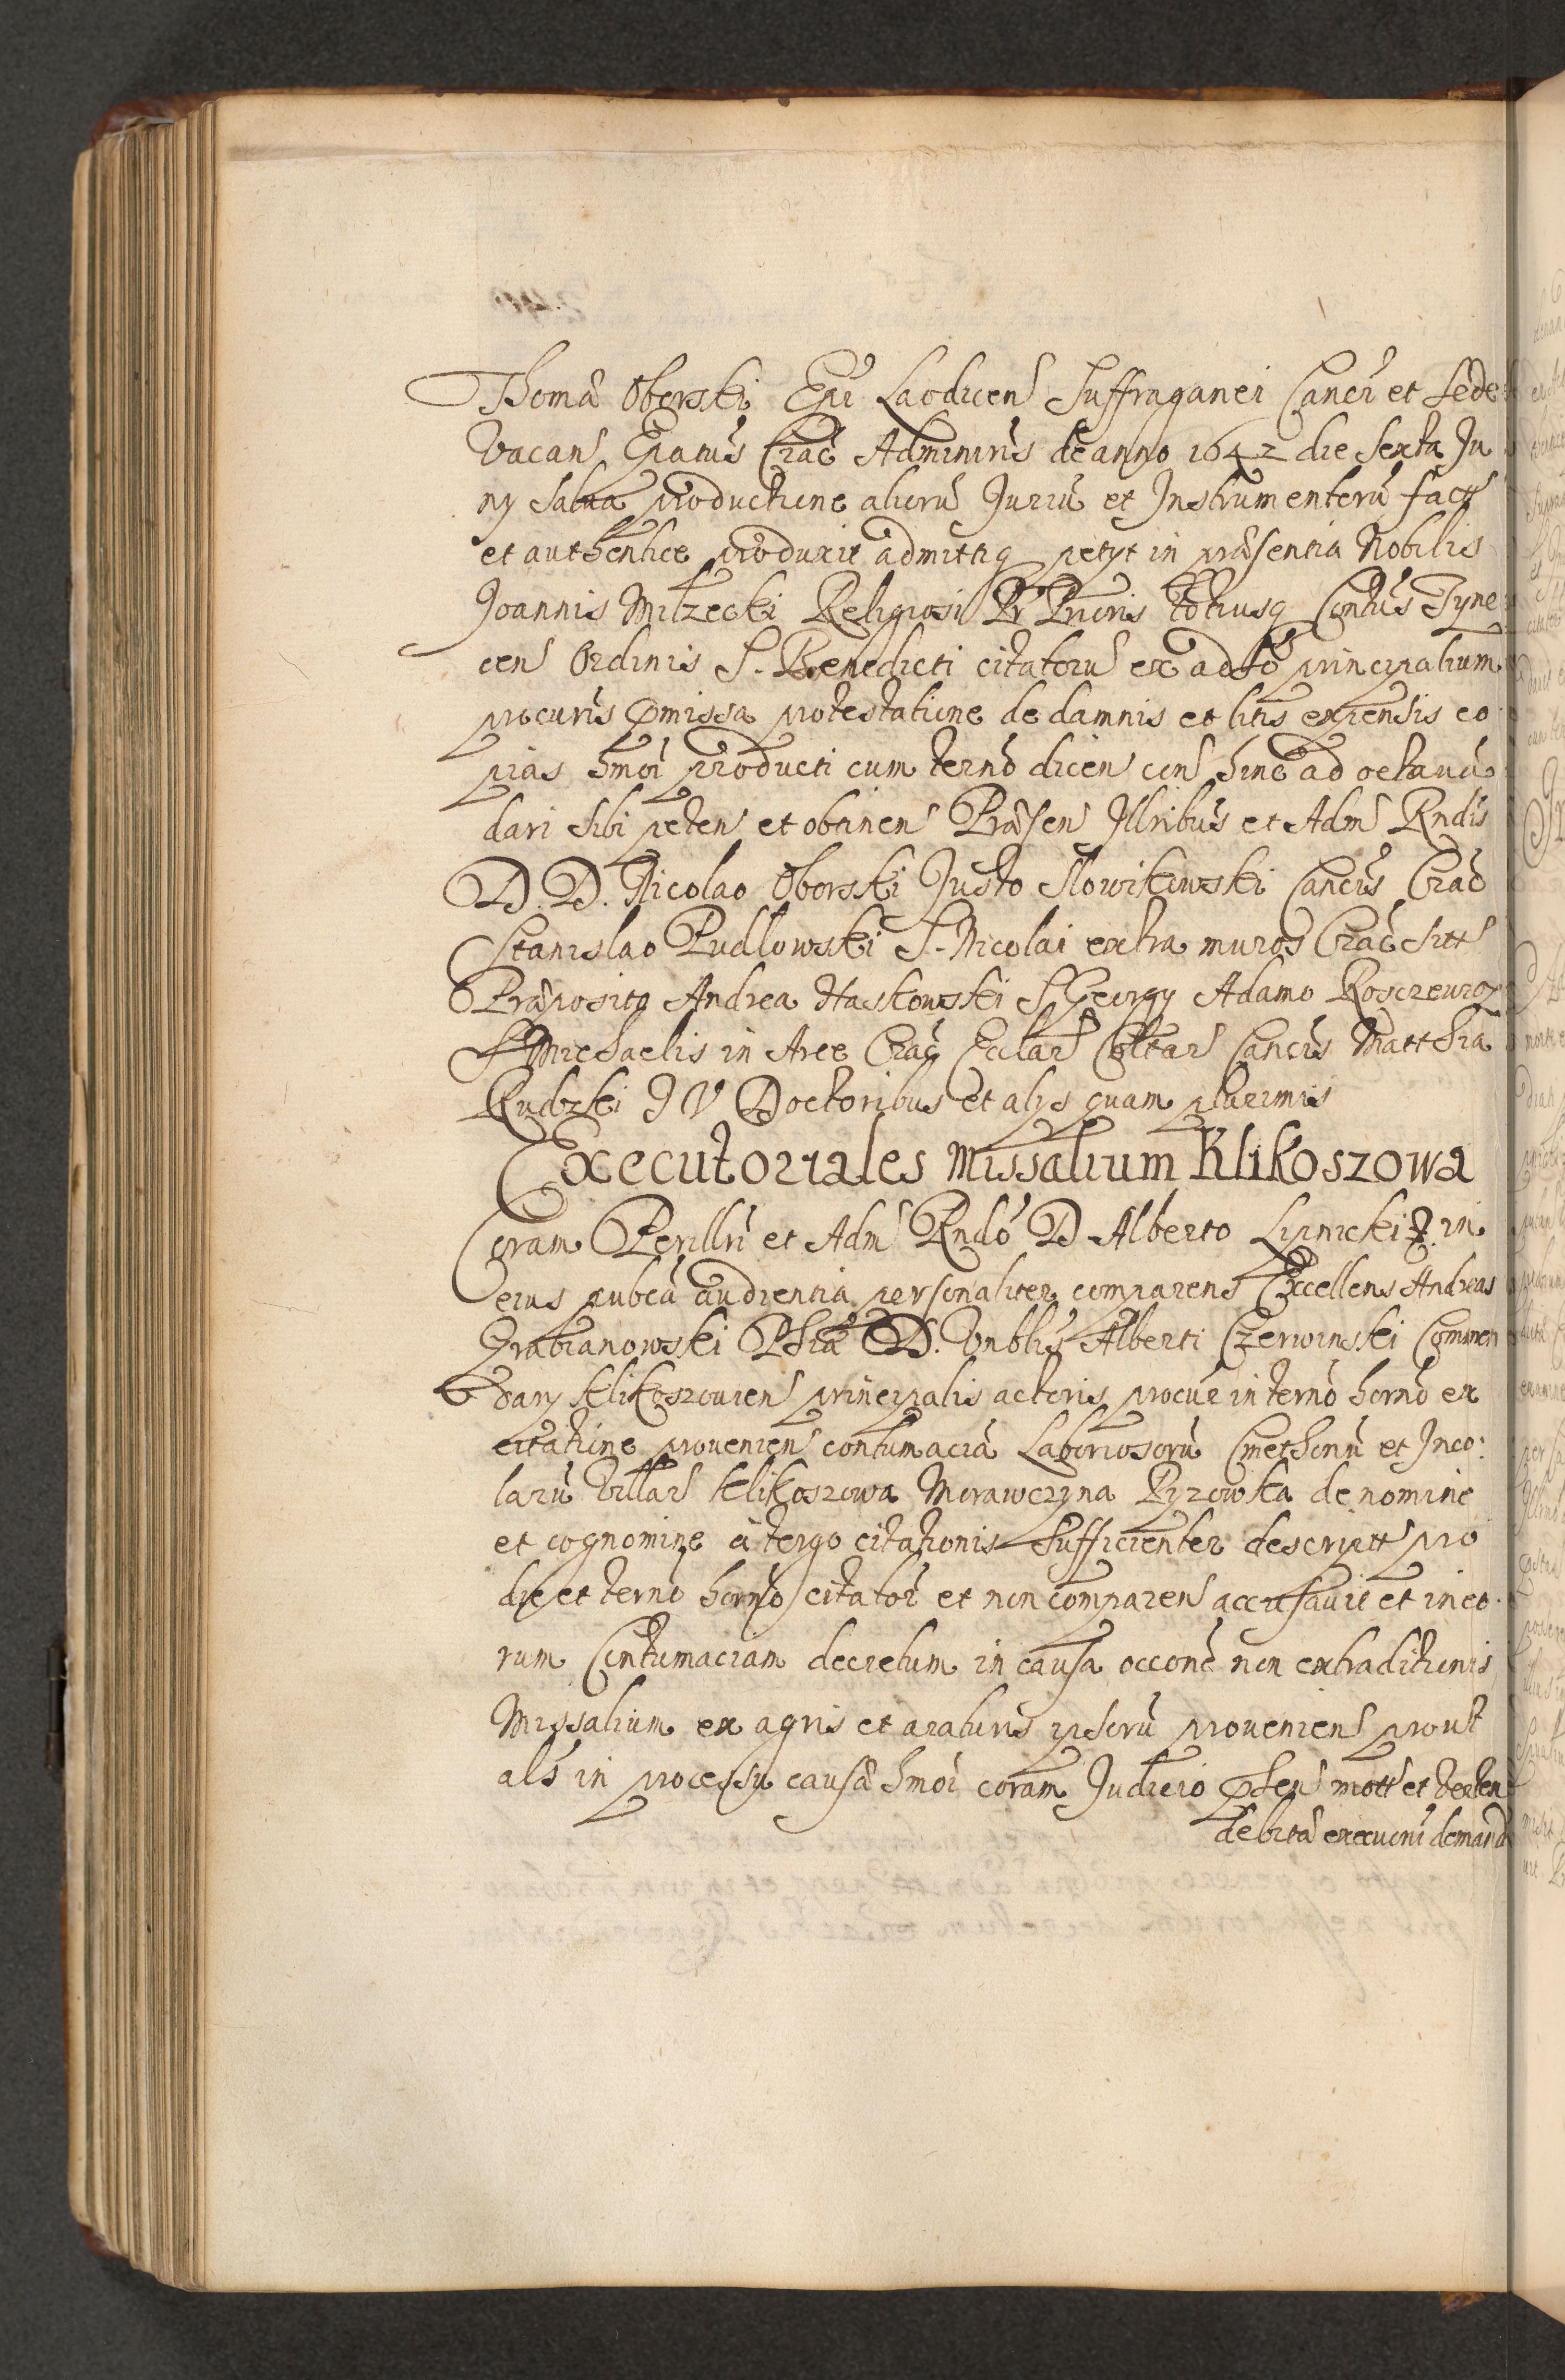 Thomæ Oborski Epi Laodicen Suffraganei Canci et Sede
Vacan Epatus Crac Adminiris de anno 1642 die Sexta Ju
ny salva productione alioru Juriu et Instrumentoru fact
et authentice produxit admittiq petyt in præsentia Nobilis
Joannis Milzecki Religiosi Pr Prioris totiusq Contus Tyne
cen Ordinis S. Benedicti citatoru ex adto principalium
procuris pmissa protestatione de damnis et litis expensis co
pias hmoi producti cum termo dicen con hinc ad octavu
dari sibi peten et obtinen Præsen Illribus et Adm Rndis
D. D. Nicolao Oborski Justo Slowikowski Cancis Crac
Stanislao Pudlowski S. Nicolai extra muros Crac sitt
Præposito Andrea Haskowski S Georgy Adamo Roscreuroz
S Michaelis in Arce Crac Ecclar Coltar Cancis Matthia
Rudzki J V Doctoribus et alys quam plurimis
Executoriales Missalium Klikoszowa
Coram Perillri et Adm Rndo D Alberto Lipnicki in
eius publca audientia personaliter comparens Excellens Andreas
Grabianowski Phiæ D. Vnblis Alberti Czerwinski Commen
dary Klikoszouien principalis actoris procur in termo horno ex
citatione prouenien contumacia Laboriosoru Cmethonu et Inco:
laru Villar Klikoszowa Morawczyna Pyzowka de nomine
et cognomine a tergo citationis sufficienter descriptt pro
die et termo horno citator et non comparen accusauit et in eo
rum Contumaciam decretum in causa occone non extraditionis
Missalium ex agris et araturis ipsoru prouenien prout
als in processu causæ hmoi coram Judicio phen mott et verten
debitæ execucni demand